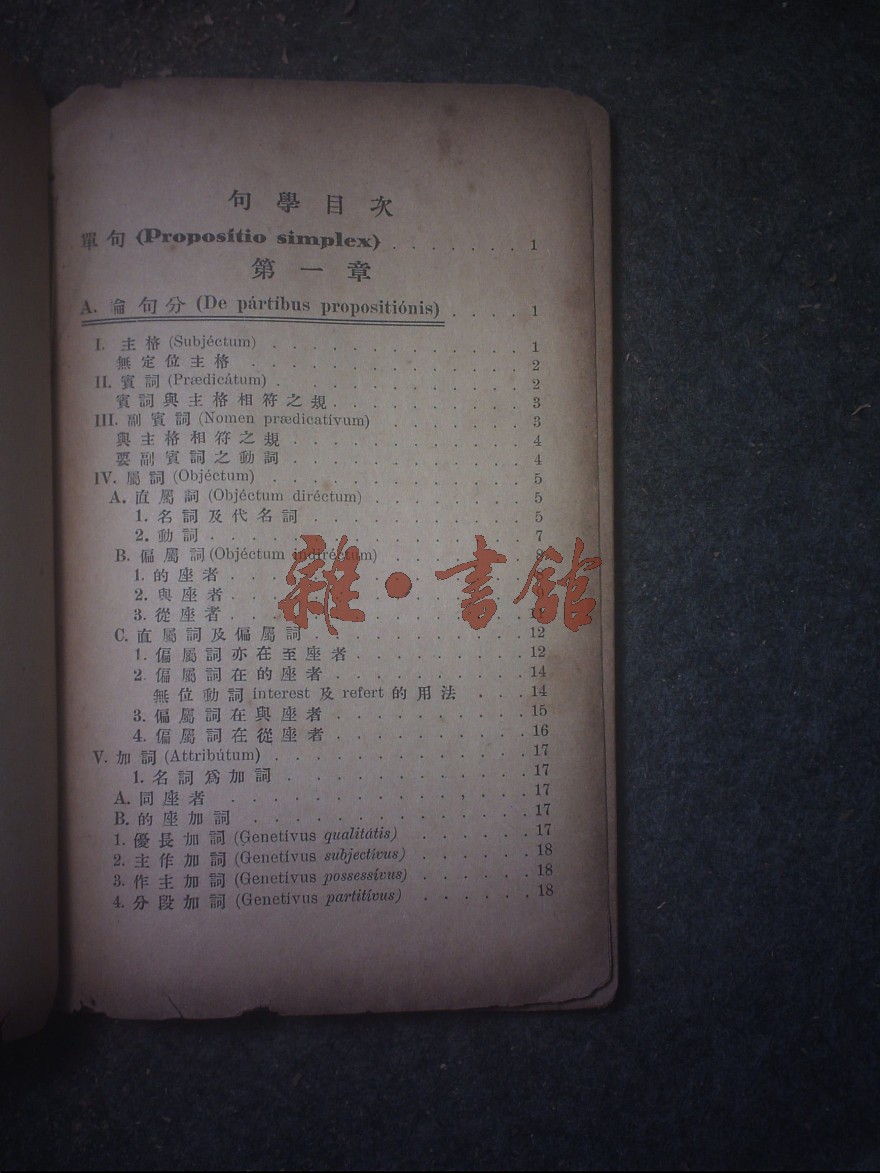 句學目次
單句 (Proposítio simplex) . . . . . . . 1
第一章
A. 論句分 (De pártibus propositiónis) . . . . 1
I. 主格 (Subjéctum) . . . . . . . . . . 1
無定位主格 . . . . . . . . . . 2
II. 賓詞 (Prædicátum) . . . . . . . . . . 2
賓詞與主格相符之規 . . . . . . . . 3
III. 副賓詞 (Nomen prædicatívum) . . . . . . 3
與主格相符之規 . . . . . . . . . 4
要副賓詞之動詞 . . . . . . . . . 4
IV. 屬詞 (Objéctum) . . . . . . . . . . 5
A. 直屬詞 (Objéctum diréctum) . . . . . . 5
1. 名詞及代名詞 . . . . . . . . 5
2. 動詞 . . . . . . . . . . . 7
B. 偏屬詞 (Objéctum indiréctum) . . . . . 8
1. 的座者 . . . . . . . . . .
2. 與座者 . . . . . . . . . .
3. 從座者 . . . . . . . . . .
C. 直屬詞及偏屬詞 . . . . . . . . 12
1. 偏屬詞亦在至座者 . . . . . . . 12
2. 偏屬詞在的座者 . . . . . . . . 14
無位動詞 interest 及 refert 的用法 . . . 14
3. 偏屬詞在與座者 . . . . . . . . 15
4. 偏屬詞在從座者 . . . . . . . . 16
V. 加詞 (Attribútum) . . . . . . . . . . 17
1. 名詞爲加詞 . . . . . . . . . 17
A. 同座者 . . . . . . . . . . . 17
B. 的座加詞 . . . . . . . . . . 17
1. 優長加詞 (Genetívus qualitátis) . . . . . . 17
2. 主作加詞 (Genetívus subjectívus) . . . . . . 18
3. 作主加詞 (Genetívus possessívus) . . . . . . 18
4. 分段加詞 (Genetívus partitívus) . . . . . . 18
雜·書館